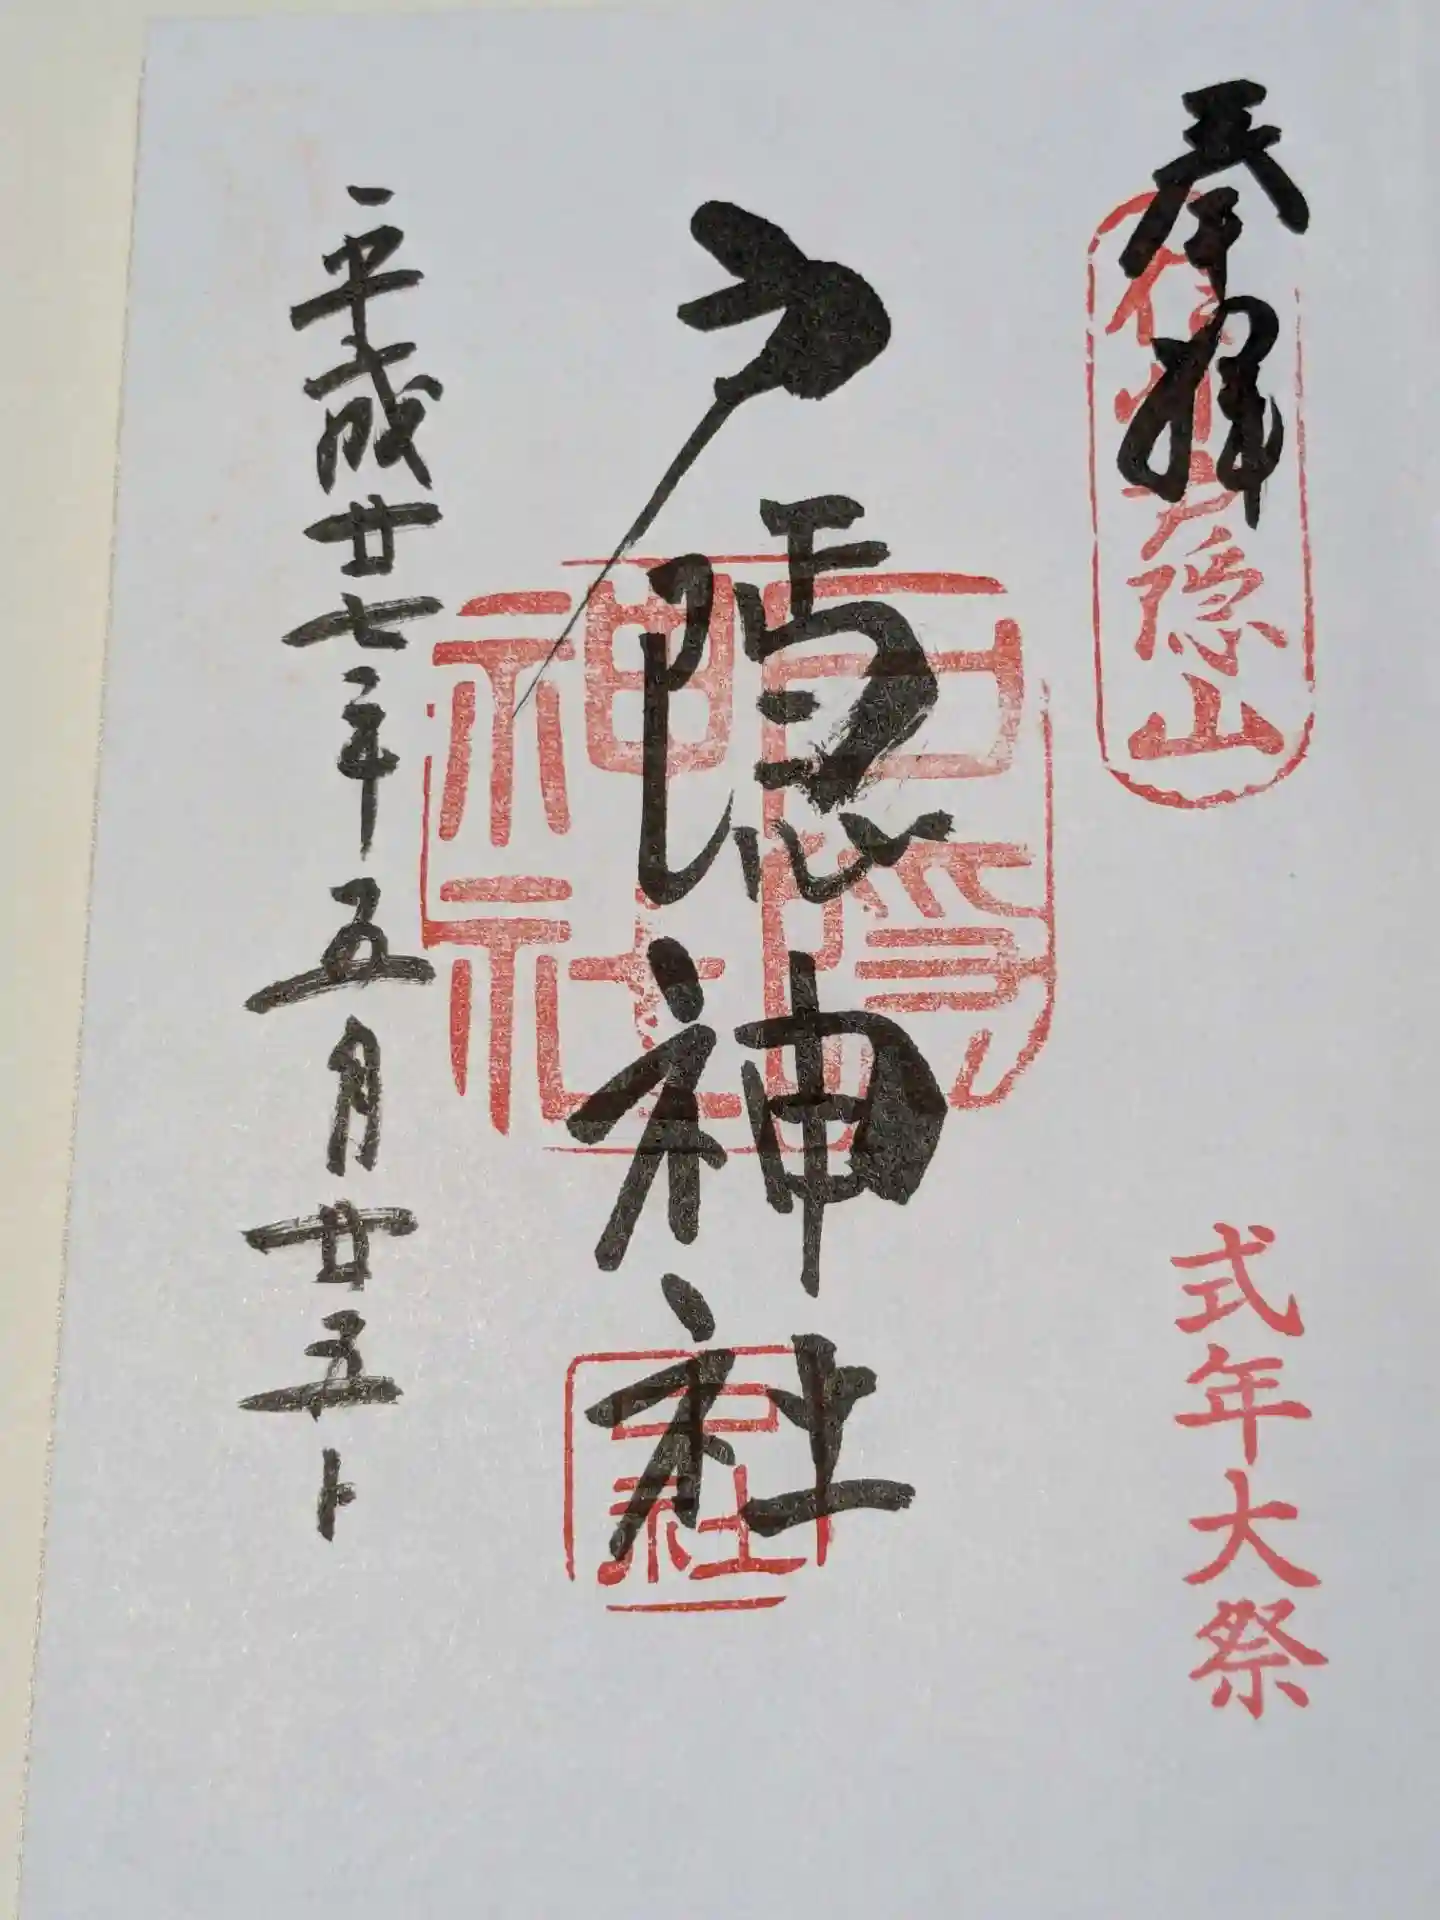 奉拝
信州戸隠山
式年大祭
戸隠神社
戸隠神社
平成廿七年五月廿五日